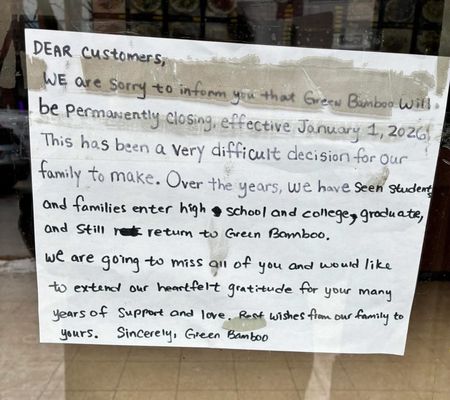 DEAR Customers,
WE are sorry to inform you that Green Bamboo Will
be Permanently closing, effective January 1, 2026.
This has been a very difficult decision for our
family to make. Over the years, we have seen students
and families enter high school and college, graduate,
and still return to Green Bamboo.
We are going to miss all of you and would like
to extend our heartfelt gratitude for your many
years of support and love. Best wishes from our family to
yours. Sincerely, Green Bamboo